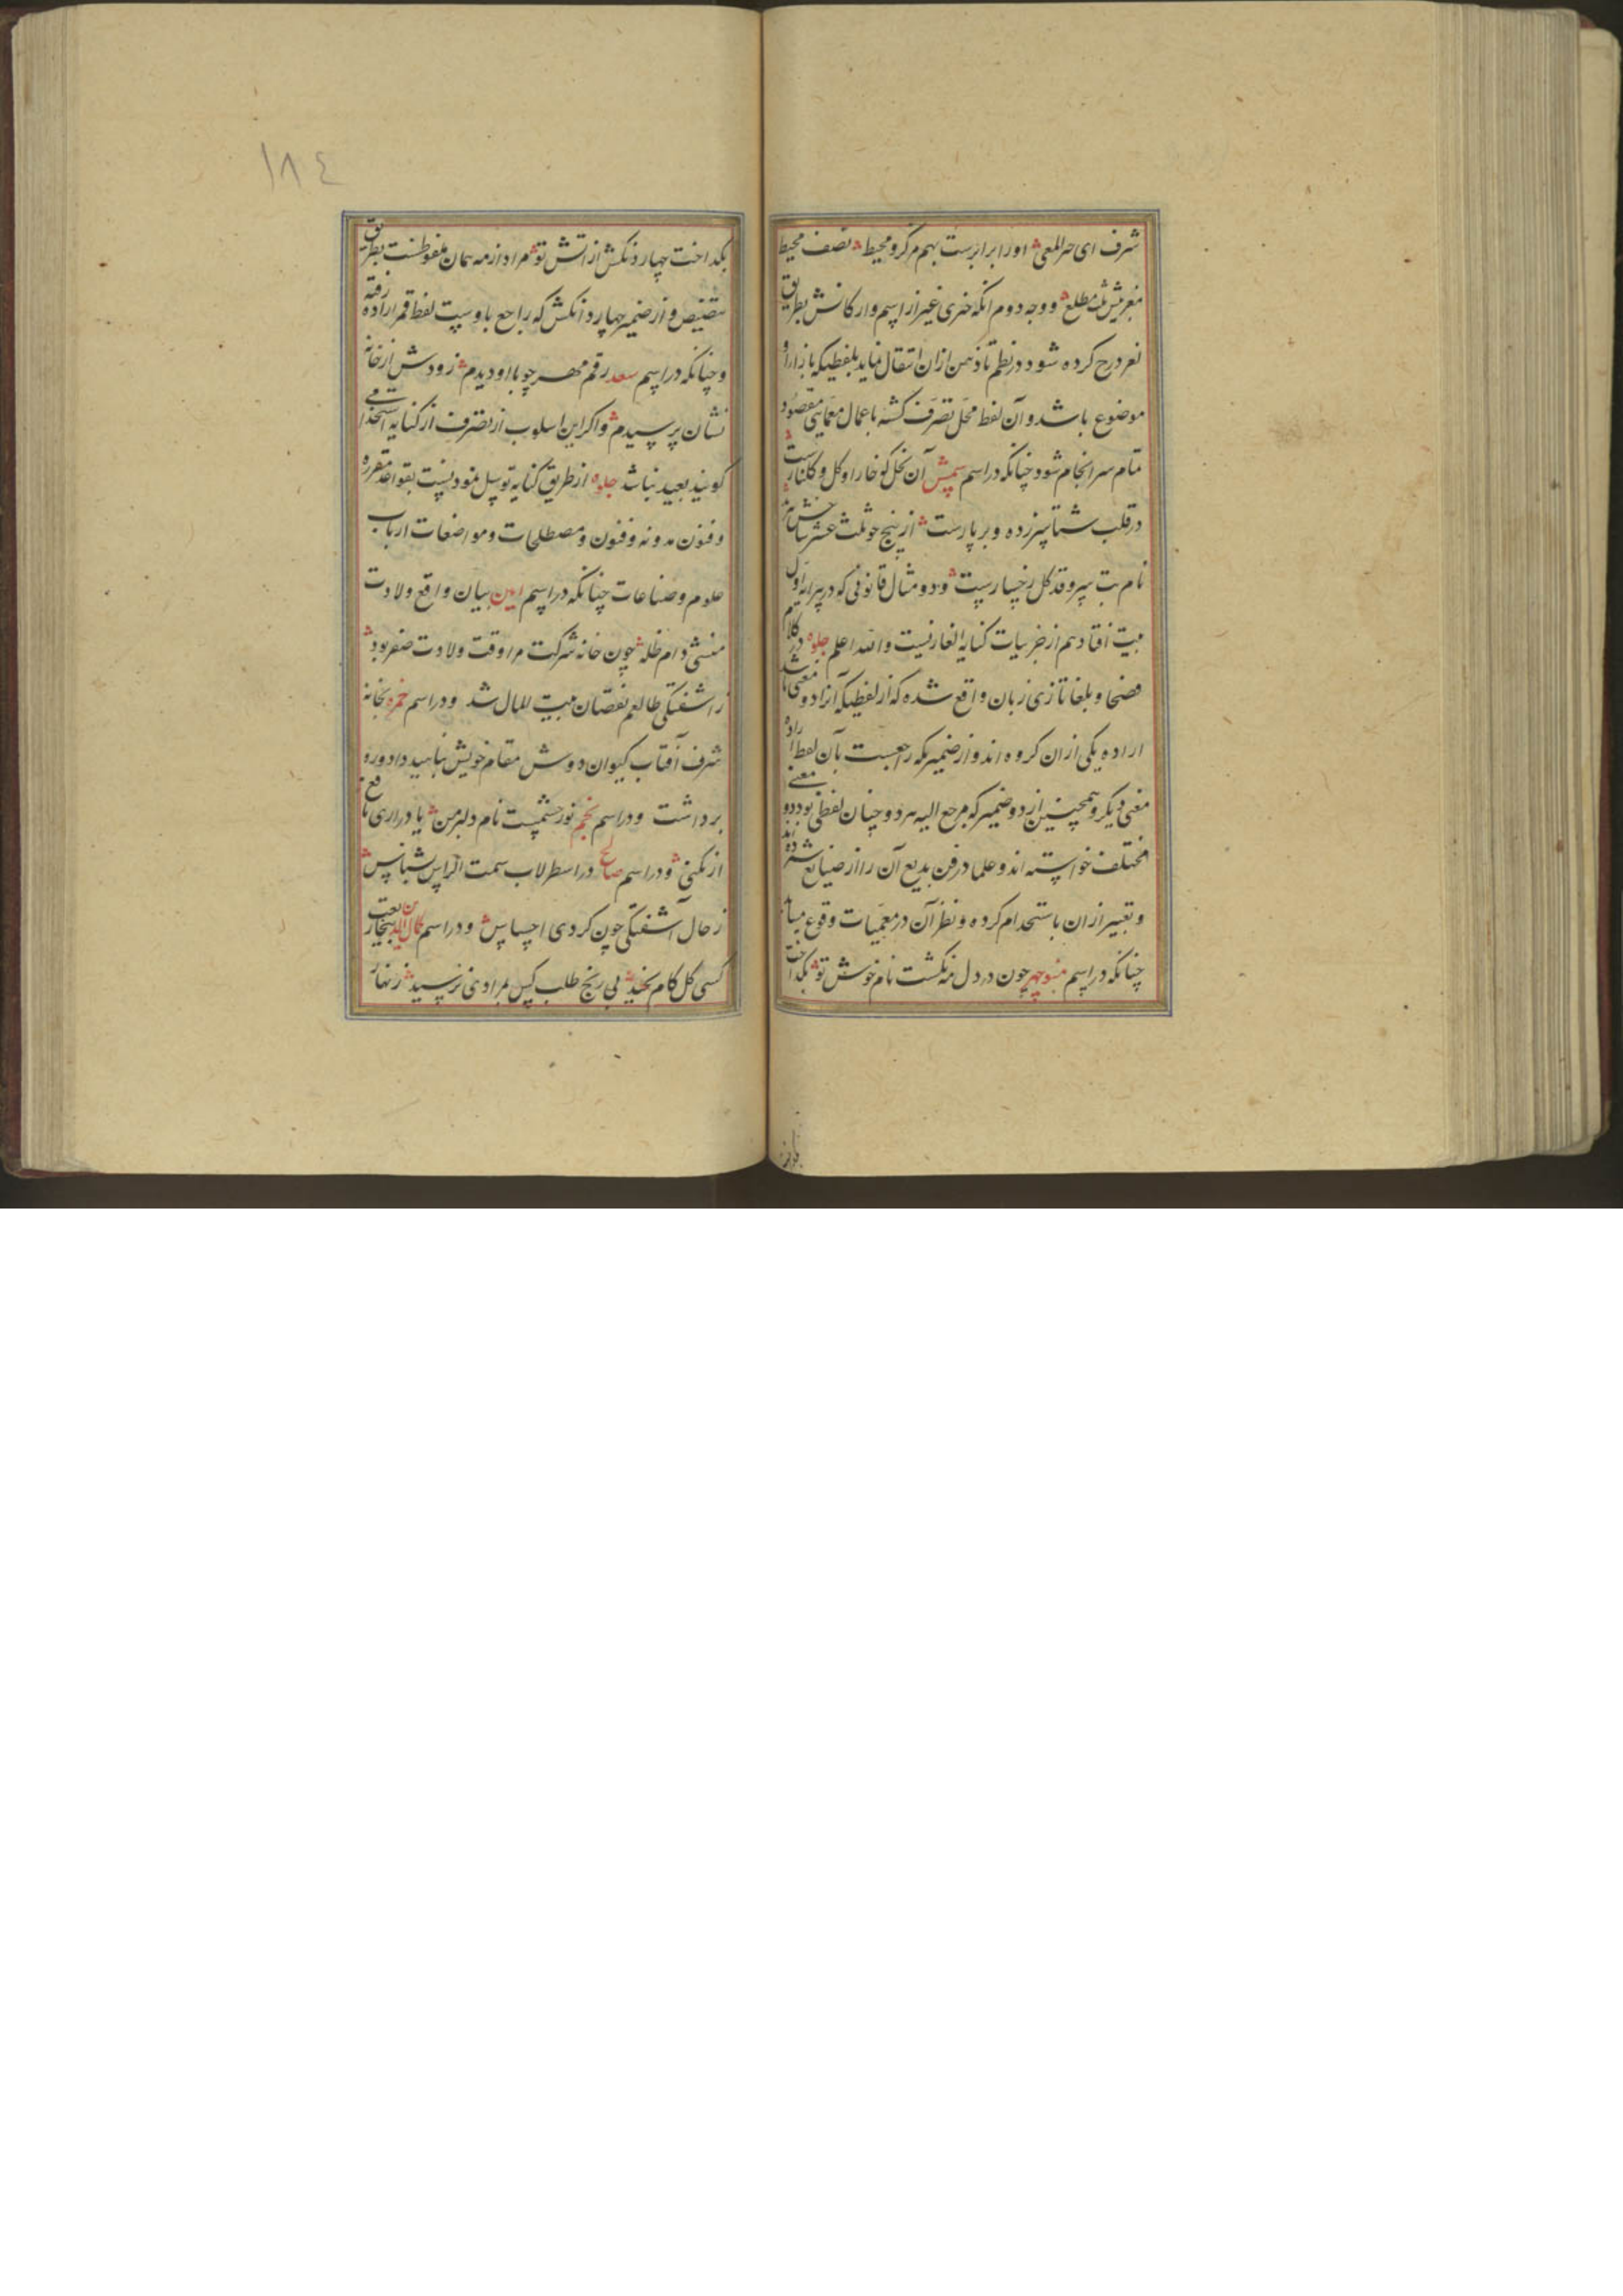 شرف ای حر المعی اورا برابرست بهم مرکز و محیط نصف محیط
مطلع و وجه دوم انکه خبری غیر از اسم وارکانش بطریق
لغز درج کرده شود در نظم تا ذهن ازان انتقال نماید بلفظیکه بازاء او
موضوع باشد و آن لفظ محل تصرف کشته باعمال معمایی مقصود
تمام سرانجام شود چنانکه در اسم آن نخل کو خار او کل و کلنارست
در قلب شتا سبز و بربارست از پنج جو ثلث عشر
نام بت سرو قد کل رخسارست و دو مثال قانونی که در پیرایه اول
بیت افتاد هم از جزییات کنایه الغازیست والله اعلم جلوه در کلام
فصحا و بلغا تازی زبان واقع شده که از لفظیکه آنرا دو معنی باشد
اراده یکی ازان کرده اند و از ضمیریکه راجعست بآن لفظ اراده
معنی دیکر و همچنین از دو ضمیر که مرجع الیه هر دو چنان لفظی بود دو معنی
مختلف خواسته اند و علما در فن بدیع آن را از صنایع شمرده اند
و تعبیر ازان باستخدام کرده و نظر آن در معمیات وقوع
چنانکه در اسم منوچهر چون در دل مه نکشت نام خوش تو بکداخت
١٨٤
بکداخت چهار دنکش از آتش تو مراد از مه همان ملفوظست بطریق
تنصیص و از ضمیر چهار دانکش که راجع باوست لفظ قمر اراده رفته
و چنانکه در اسم سعد رقم مهر چو با او دیدم زودش از خانه
نشان پرسیدم و اکر این اسلوب از تصرف از کنایه استخدامی
کویند بعید نباشد جلوه از طریق کنایه توسل نمودنست بقواعد مقرره
و فنون مدونه و فنون و مصطلحات و مواضعات ارباب
علوم و صناعات چنانکه در اسم امین بیان واقع ولادت
منشی دام ظله چون خانه شرکت مرا وقت ولادت صفر بود
ز اشفتکی طالعم نقصان بیت المال شد و در اسم حمزه بخانه
شرف آفتاب کیوان دوش مقام خویش بناهید داد و رو
برداشت و در اسم نجم نور چشمیست نام دلبر من یا دراری
از نکنی و در اسم صالح در اسطرلاب سمت الراس شناس
ز حال آشفتکی چون کردی احساس و در اسم کمال الدین
کسی کل کام نچید بی رنج طلب کس بمرادی نرسید زنهار